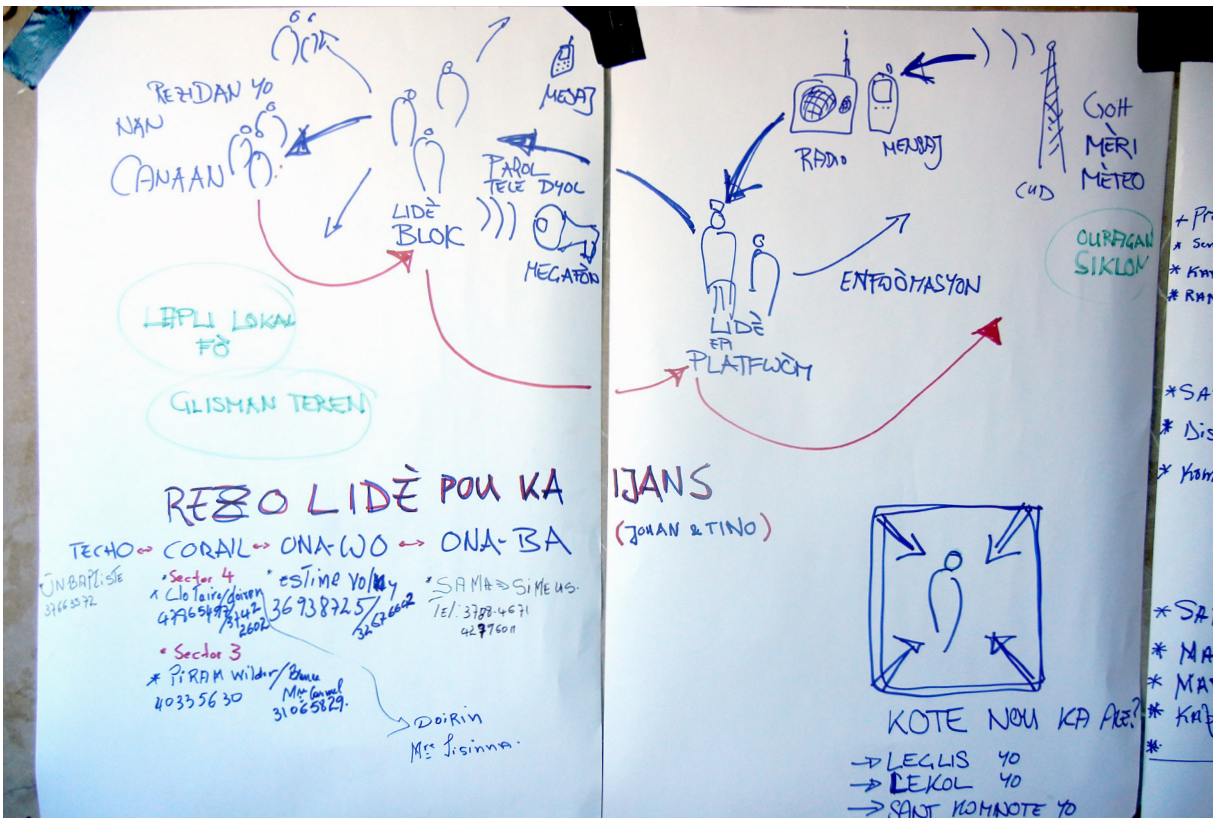 REZIDAN YO
NAN
CANAAN
MESAJ
PAROL
TELE DYOL
LIDÈ
BLOK
MEGAFÒN
LAPLI LOKAL
FÒ
GLISMAN TEREN
RADIO
MENSAJ
CUD
GOH
MÈRI
MÈTEO
OURAGAN
SIKLON
ENFWÒMASYON
LIDÈ
EPI
PLATFWÒM
REZO LIDÈ POU KA IJANS
(JOHAN & TINO)
TECHO ↔ CORAIL ↔ ONA-WO ↔ ONA-BA
JN BAPTISTE
37663572
• Sector 4
* Clotaire/doiren
47965497/3742
2602
* ESTIME Volny
36938725/32676602
* SAMA SIMEUS.
Tel: 3788-4671
42776011
• Sector 3
* PIRAM Wilder/
40335630
31065829.
DOIRIN
Mre Sisinna.
KOTE NOU KA ALE?
→ LEGLIS YO
→ LEKOL YO
→ SANT KOMNOTE YO